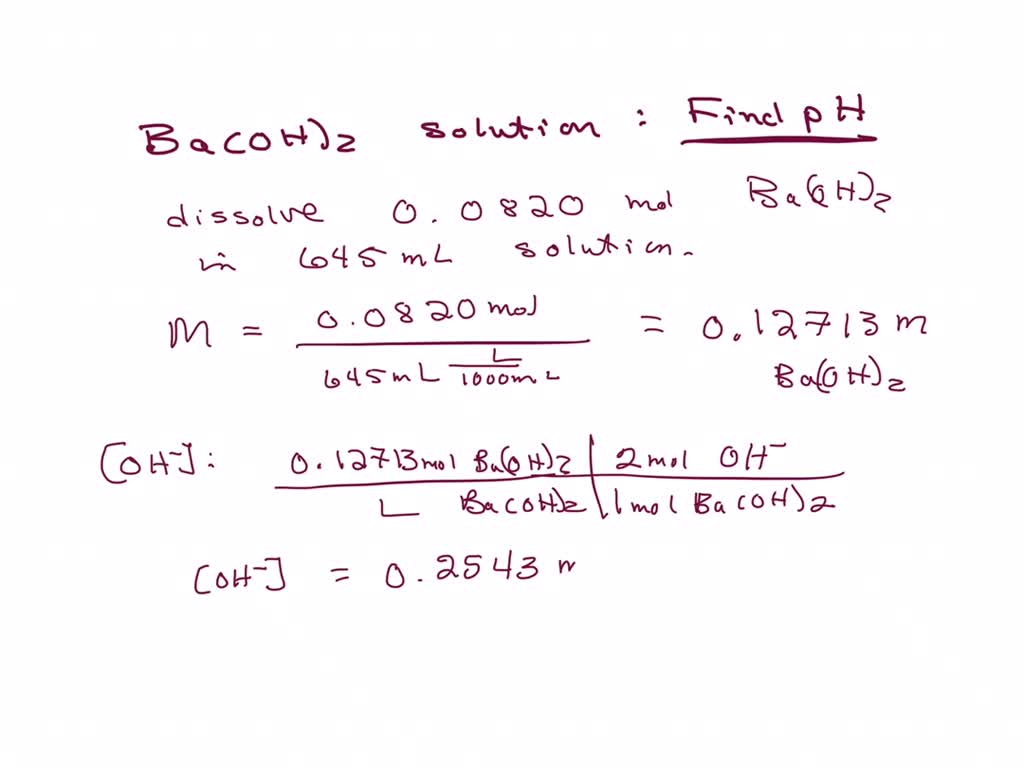 Ba(OH)2 solution : Find pH
dissolve 0.0820 mol Ba(OH)2
in 645 mL solution.
M = 0.0820 mol / 645 mL L / 1000 mL = 0.12713 M
Ba(OH)2
[OH-]: 0.12713 mol Ba(OH)2 | 2 mol OH-
L Ba(OH)2 | 1 mol Ba(OH)2
[OH-] = 0.2543 M